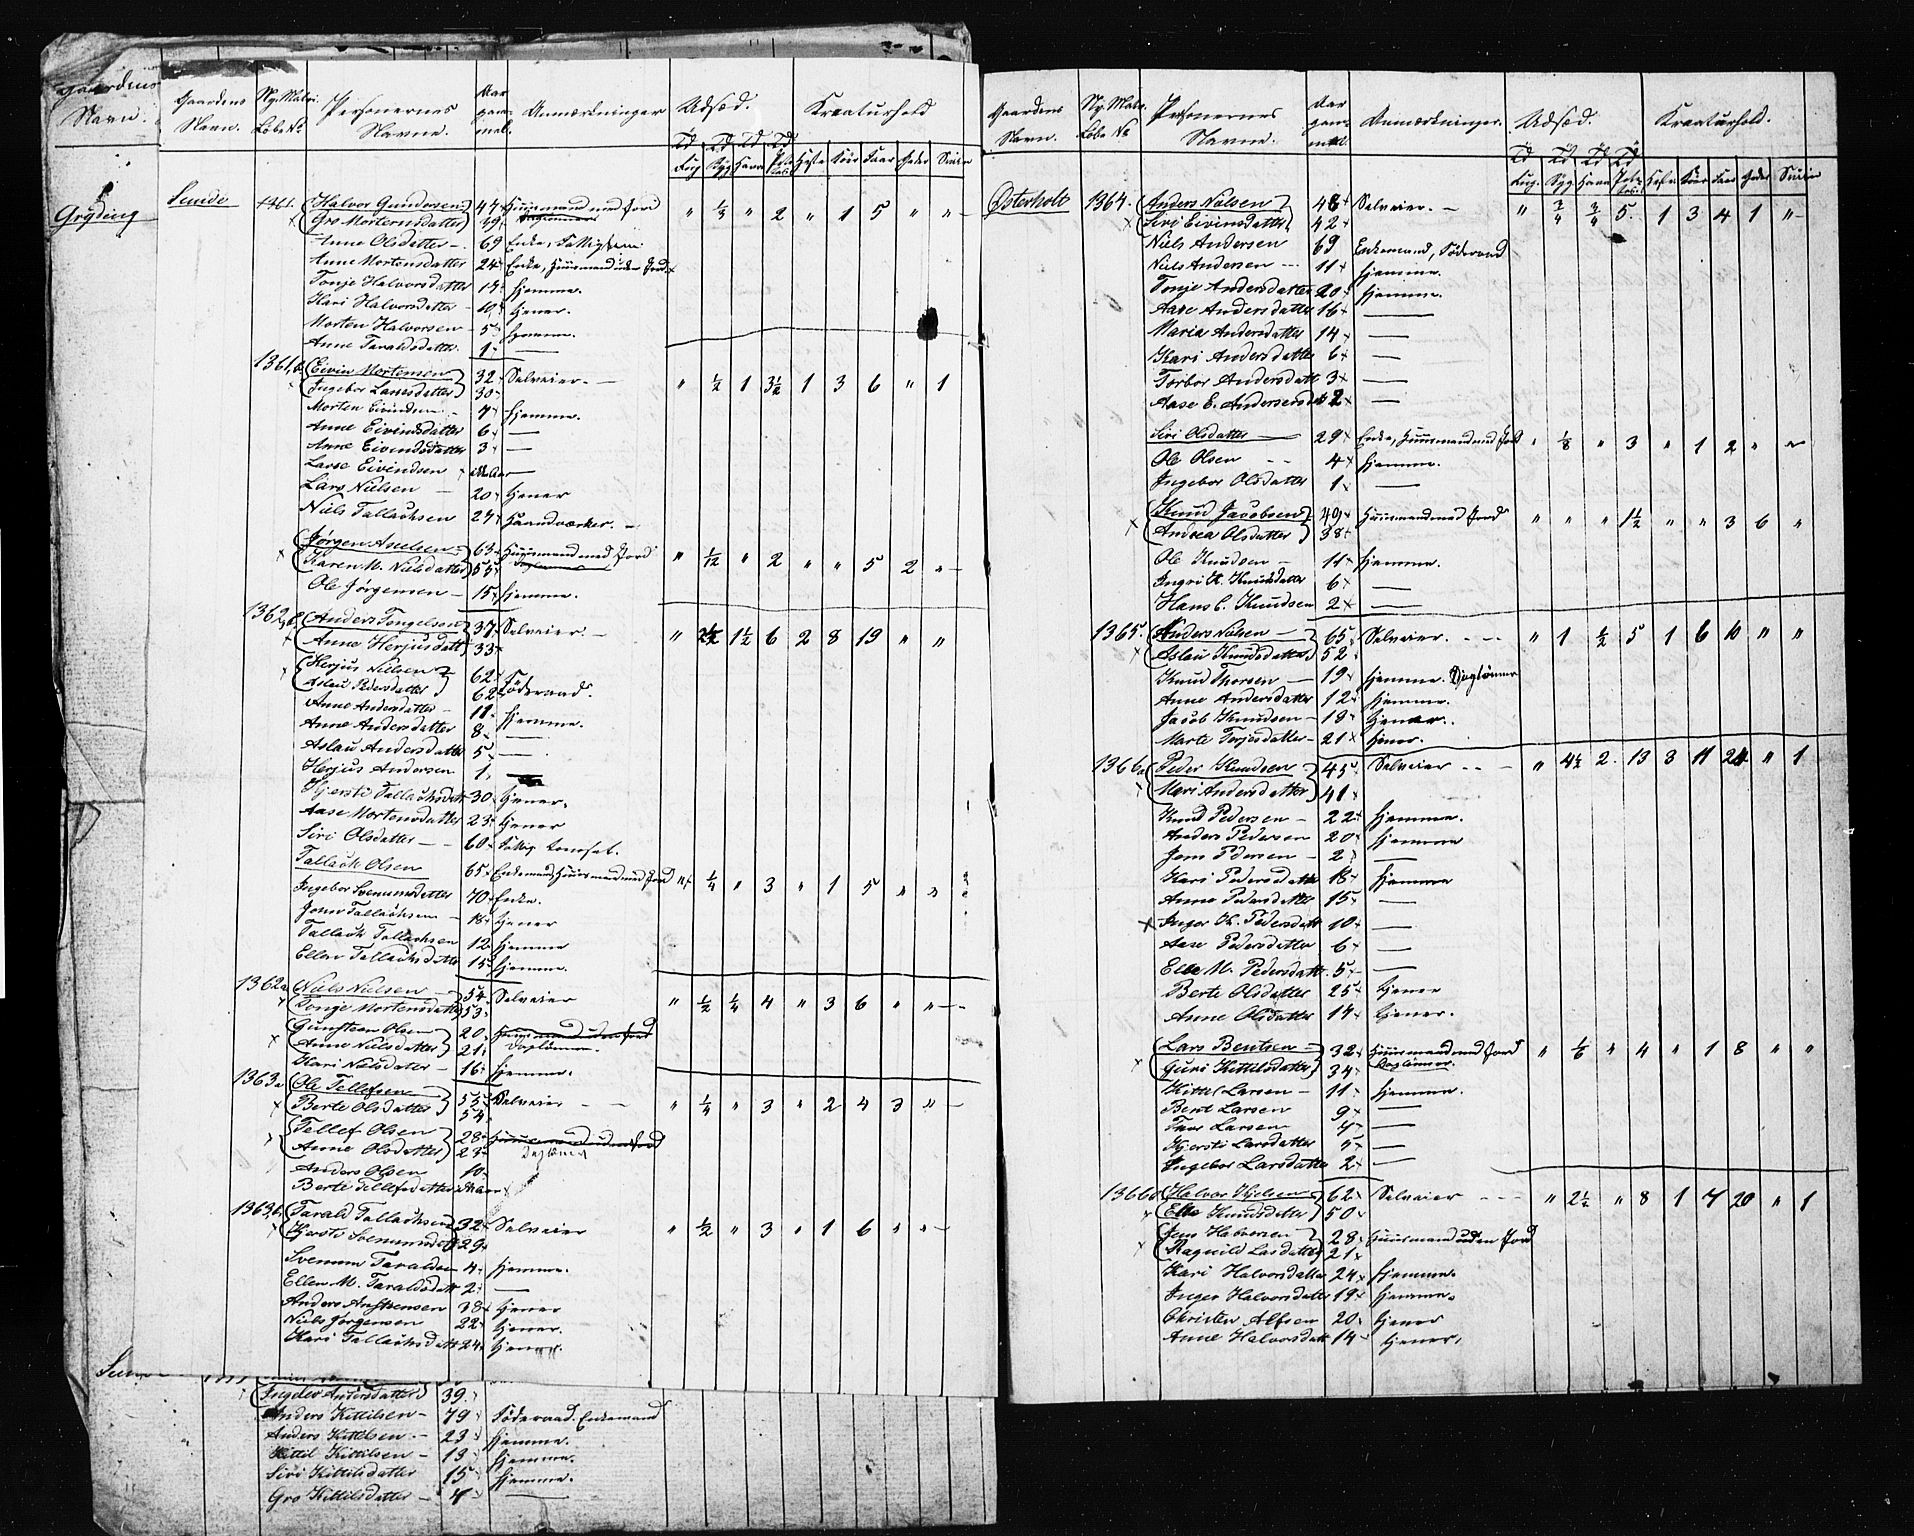 Gaardens Navn.
Gryding
Gaardens Navn. Ny Matr. Løbe No Personernes Navne. Aar gam mel. Anmærkninger Udsæd. Kreaturhold
Td Rug Td Byg Td Havre Td Poteter Heste Köer Faar Geder Sviin
Sunde 1361. Halvor Gundersen 47 Huusmand med Jord " 1/3 " 2 " 1 5 " "
Gro Mortensdatter 49
Anne Olsdatter 69 Enke, Fattiglem
Anne Mortensdatter 24 Enke, Huusmand uden Jord
Tonje Halvorsdatter 17 hjemme.
Kari Halvorsdatter tjener.
Morten Halvorsen 5 hjemme
Anne Taraldsdatter 1 —
1361,b Eivin Mortensen 32 Selveier. " 1/2 1 3 1/2 1 3 6 " 1
Ingebor Larsdatter 30
Morten Eivindsen 7 hjemme.
Anne Eivindsdatter 6 —
Anne Eivindsdatter 3 —
Larse Eivindsen —
Lars Nielsen 20 tjener
Niels Tallaksen 27 Haandværker.
Jørgen Aselsen 63 Huusmand med Jord " 1/12 " 2 " " 5 2 "
Karen M. Nielsdatter 55
Ole Jørgensen 15 hjemme.
1362,b Anders Tengelsen 37 Selveier. " 2 1/2 1 1/2 6 2 8 19 " "
Anne Herjusdatt 33
Herjus Nielsen 62 Föderaad.
Aslau Pedersdatter 62
Anne Andersdatter 11 hjemme.
Anne Andersdatter 8 —
Aslau Andersdatter 5 —
Herjus Andersen 1 —
Kjersti Tallaksdatt 30 tjener.
Aase Mortensdatter 23 tjener
Siri Olsdatter 60 Fattig
Tallack Olsen 65 Enkemand Huusmand med Jord " 1/4 " 3 " 1 5 " "
Ingebor Svenumsdatter 70 Enke.
John Tallaksen 18 tjener
Tallack Tallaksen 12 hjemme
Ellen Tallaksdatter 15 hjemme.
1362a Niels Nielsen 54 Selveier " 1/2 1/4 4 " 3 6 " "
Tonje Mortensdatter 53
Gunsteen Olsen 20 Huusmand uden Jord
Anne Nielsdatter 21 Daglønner
Kari Nielsdatter 16 hjemme.
1363a Ole Tellefsen 55 Selveier " 1/4 " 3 " 2 4 3 "
Berte Olsdatter 54
Tellef Olsen 28 Huusmand uden Jord
Anne Olsdatter 23 Daglønner
Anders Olsen 10
Berte Tellefsdatter
1363,b Tarald Tallaksen 32 Selveier " 1/2 " 3 " 1 6 " "
Kjersti Svenumsdatt 29
Svenum Taraldsen 4 hjemme.
Ellen M. Taraldsdatt 2 —
Anders 38 tjener
Niels Jørgensen 22 tjener.
Kari Tallaksdatt 24 tjener.
Ingebor Andersdatter 39.
Anders Kittilsen 79 Föderaad. Enkemand
Anders Kittilsen 23 hjemme.
Kittil Kittilsen 19 hjemme.
Siri Kittilsdatter 15 hjemme.
Gro Kittilsdatter 4 —
Gaardens Navn. Ny Matr. Løbe No Personernes Navne. Aar gam mel. Anmærkninger. Udsæd. Kreaturhold.
Td Rug. Td Byg Td Havre Td Poteter Heste Köer Faar Geder Sviin
Østerholt 1364. Anders Nielsen 48 Selveier. " 3/4 3/4 5. 1 3 4 1 "
Siri Eivinsdatter 42
Niels Andersen 69 Enkemand, Föderaad
Niels Andersen 11 hjemme.
Tonje Andersdatter 20 hjemme.
Aase Andersdatter 16 —
Maria Andersdatter 14 —
Kari Andersdatter 6 —
Torbor Andersdatt 3 —
Aase E. Andersensdatt 2 —
Siri Olsdatter 29 Enke, Huusmand med Jord " 1/8 " 3 " 1 2 " "
Ole Olsen 4 hjemme.
Ingebor Olsdatter 1 —
Knud Jacobsen 49 Huusmand med Jord " " " 1 1/2 " " 3 6 "
Andrea Olsdatter 38
Ole Knudsen 11 hjemme.
Ingri K. Knudsdatter 6 —
Hans C. Knudsen 2 —
1365. Anders Nielsen 65 Selveier. " 1 1/2 5 1 6 10 " "
Aslau Knudsdatter 52
Knud Thorsen 19 hjemme. Daglønner
Anne Andersdatter 12 hjemme.
Jacob Knudsen 19 tjener.
Marte Terjesdatter 21 tjener.
1366a Peder Knudsen 45 Selveier " 4 1/2 2 13 3 11 24 " 1
Mari Andersdatter 41
Knud Pedersen 22 hjemme.
Anders Pedersen 20 hjemme
Jens Pedersen 2 —
Kari Pedersdatter 18 hjemme
Anne Pedersdatter 15 —
Inger K. Pedersdatt 10 —
Aase Pedersdatter 6 —
Elle M. Pedersdatt 5 —
Berte Olsdatter 25 tjener
Anne Olsdatter 14 tjener.
Lars Bentsen 32 Huusmand med Jord " 1/6 " 4 " 1 8 " "
Guri Kittilsdatter 34 Daglønner.
Kittil Larsen 11 hjemme.
Bent Larsen 9 —
Thor Larsen 7 —
Kjersti Larsdatter 5 —
Ingebor Larsdatter 2 —
1366b Halvor Kjelsen 62 Selveier " 2 1/2 " 8 1 7 20 " 1
Elle Knudsdatter 50
Jens Halvorsen 28 Huusmand uden Jord
Ragnild Larsdatter 21
Kari Halvorsdatter 24 hjemme.
Inger Halvorsdatter 19 hjemme.
Christen Alfsen 20 tjener
Anne Halvorsdatt 14 tjener.